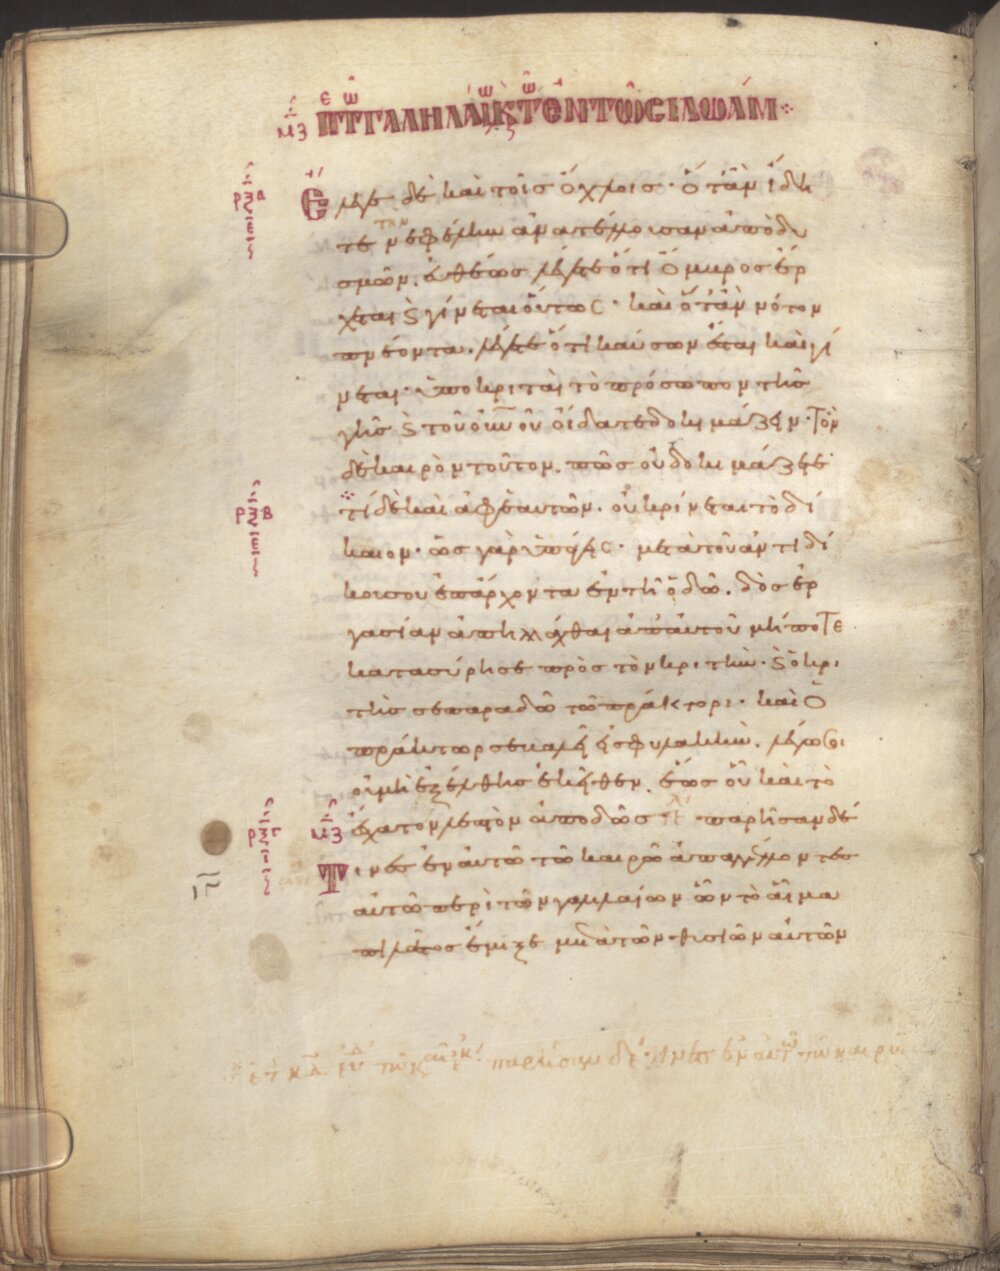 μζ περι των γαληλαιων κ των εν τω σιλωαμ
ρξα ε Ελεγε δὲ καὶ τοῖς ὄχλοις· ὅταν ἴδη
τε την νεφέλην ἀνατέλλουσαν ἀπὸ δυ
σμῶν, εὐθέως λέγετε ὅτι ὄμβρος ἔρ
χεται ϗ γίνεται οὕτως· καὶ ὅταν νότον
πνέοντα, λέγετε ὅτι καύσων ἔσται καὶ γί
νεται· ὑποκριταὶ τὸ πρόσωπον τῆς
γῆς ϗ τοῦ οὐνοῦ οἴδατε δοκιμάζειν· τὸν
δὲ καιρὸν τοῦτον, πῶς οὐ δοκιμάζετε·
ρξβ ε τί δὲ καὶ ἀφ' ἑαυτῶν, οὐ κρίνεται τὸ δί
καιον· ὡς γὰρ ὑπάγεις· μετὰ τοῦ ἀντιδί
κου σου ἐπ' ἄρχοντα ἐν τῆ ὁδῶ, δὸς ἐρ
γασίαν ἀπηλλάχθαι ἀπ' αὐτοῦ μήποτε
κατασύρη σε πρὸς τὸν κριτήν· ϗ ὁ κρι
τής σε παραδῶ τῶ πράκτορι· καὶ ὁ
πράκτωρ σε βαλῆ εἰς φυλακήν, λέγω σοι
οὐ μὴ ἐξέλθης ἐκεῖθεν, ἕως οὗ καὶ τὸ
ρξγ ι μζ ἔσχατον λεπτὸν ἀποδῶς παρῆσαν δέ
Τινες ἐν αὐτῶ τῶ καιρῶ ἀπαγγέλλοντες
αὐτῶ περὶ τῶν γαλιλαίων ὧν τὸ αἷμα
πιλάτος ἔμιξε μετὰ τῶν θυσιῶν αὐτῶν
παρῆσαν δέ τινες ἐν αὐτῶ τῶ καιρῶ